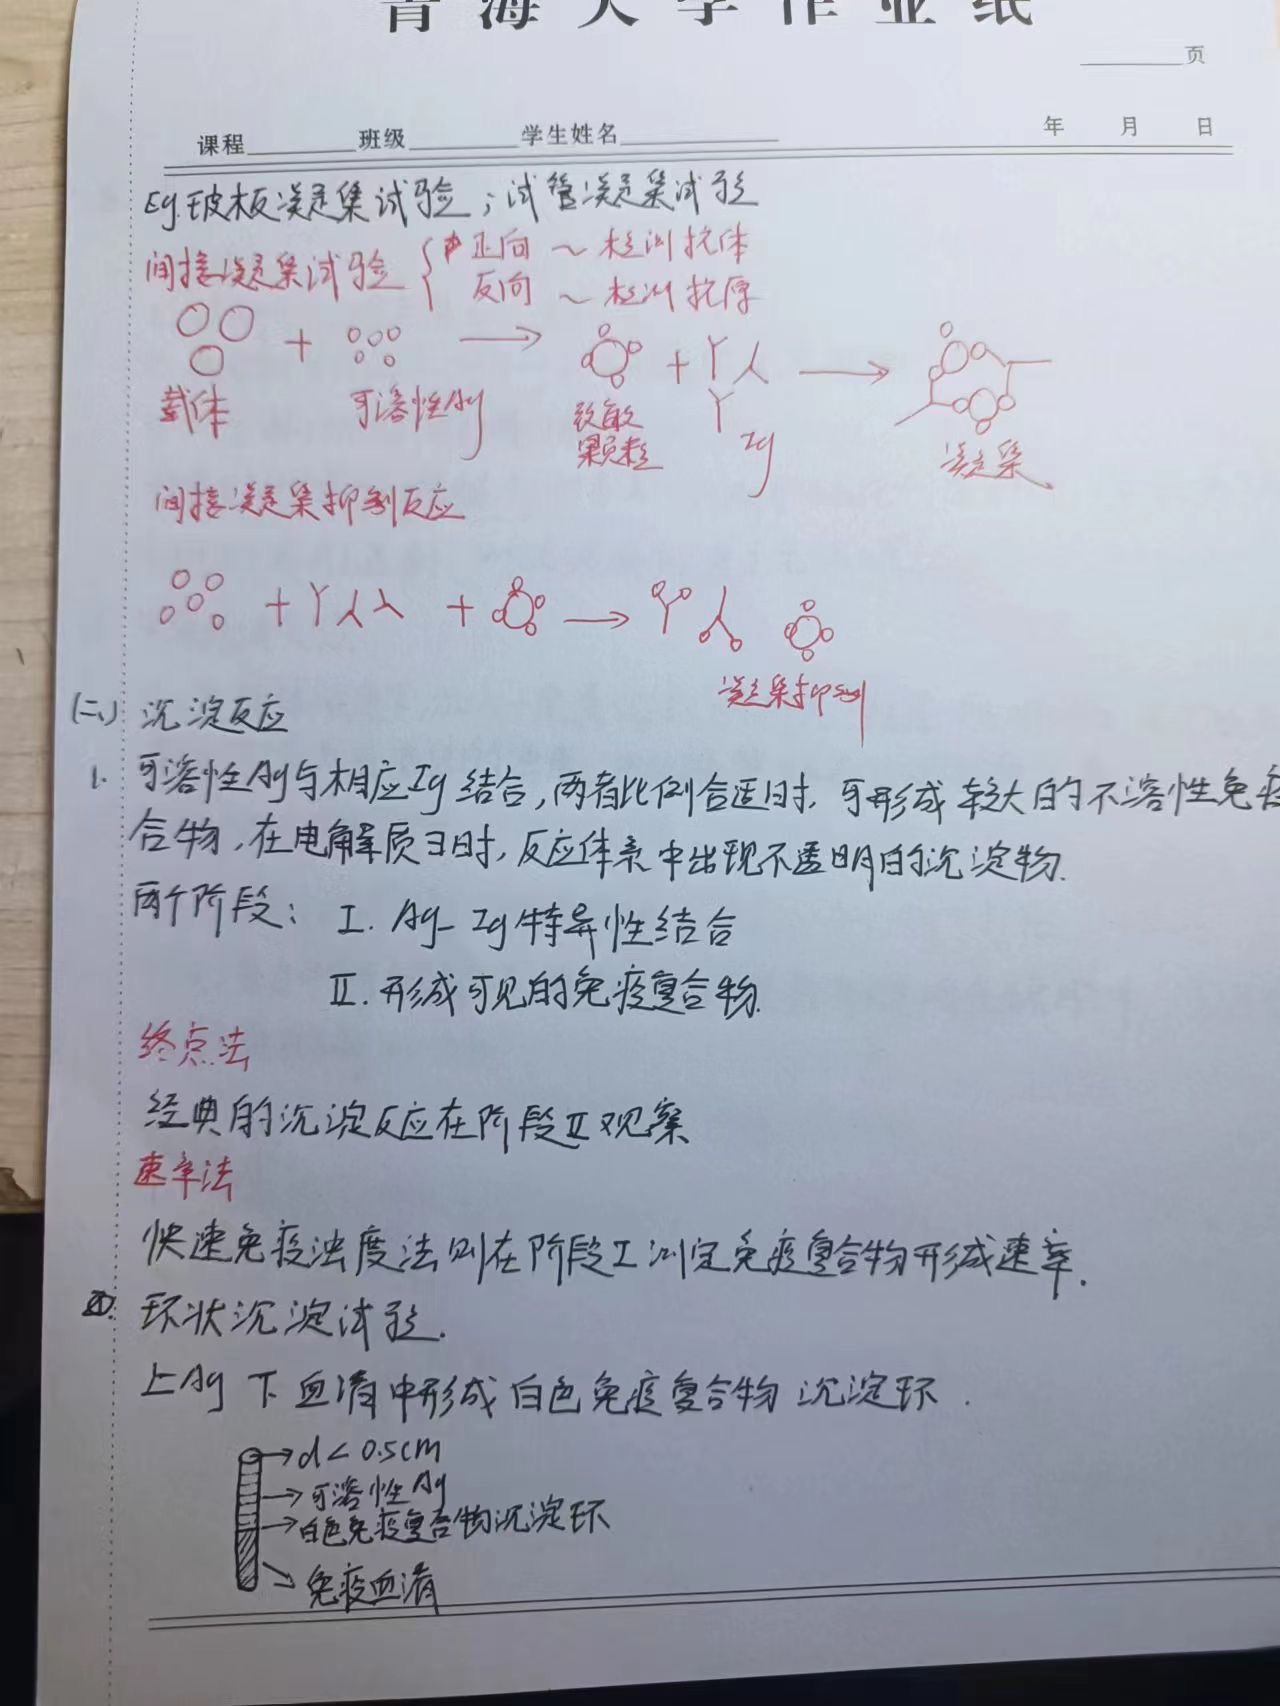 青海大学作业纸
页
课程 班级 学生姓名 年 月 日
Eg.玻板凝集试验；试管凝集试验
间接凝集试验 正向～检测抗体
反向～检测抗原
+ → + →
载体 可溶性Ag 致敏颗粒 Ig 凝集.
间接凝集抑制反应
+ + →
凝集抑制
(二、) 沉淀反应
1. 可溶性Ag与相应Ig结合,两者比例合适时,可形成较大的不溶性免疫
合物,在电解质ヨ时,反应体系中出现不透明的沉淀物.
两个阶段: I. Ag-Ig特异性结合
II. 形成可见的免疫复合物.
终点法
经典的沉淀反应在阶段II观察
速率法
快速免疫浊度法则在阶段I测定免疫复合物形成速率.
环状沉淀试验.
上Ag下血清中形成白色免疫复合物沉淀环.
→d<0.5cm
→可溶性Ag
→白色免疫复合物沉淀环
→免疫血清